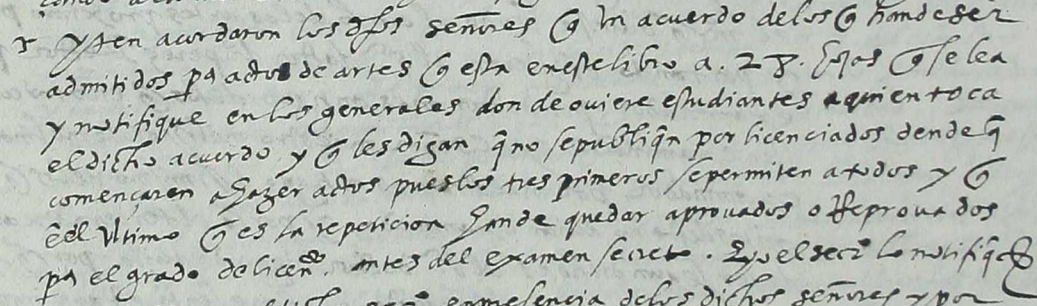 yten acordaron los dhos señores q̃ un acuerdo delos q̃ han de ser
admitidos pa actos de artes q̃ esta eneste libro a. 28. hojas q̃ se lea
y notifique en los generales donde oviere estudiantes aquien toca
el dicho acuerdo y q̃ les digan q̃ no se publiqn̄ por licenciados dende q̃
començaren a hazer actos pues los tres primeros se permiten a todos y q̃
ēel ultimo q̃ es la repeticion han de quedar aprovados o Reprovados
pa el grado de licendo. antes del examen secreto. Eyo el secro lo notifiq̃
en presencia de los dichos señores y por